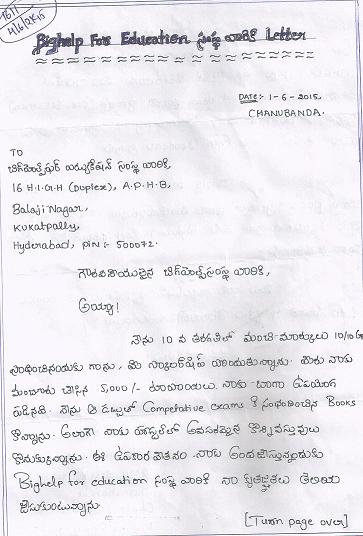 1611
4/6/2015
Bighelp For Education సంస్థ వారికి Letter
DATE:- 1-6-2015,
CHANUBANDA.
TO
బిగ్‌హెల్ప్‌ఫర్ ఎడ్యుకేషన్ సంస్థ వారికి,
16 H.I.G.H (Duplex), A.P.H.B,
Balaji Nagar,
Kukatpally,
Hyderabad, PIN:- 500072.
గౌరవనీయులైన బిగ్‌హెల్ప్‌సంస్థ వారికి,
అయ్యా!
నేను 10 వ తరగతిలో మంచి మార్కులు 10/10
సాధించినందుకు గాను, మీ స్కాలర్‌షిప్ పొందుతున్నాను. మీరు నాకు
మంజూరు చేసిన 5,000/- రూపాయలు. నాకు బాగా ఉపయోగ
పడినవి. నేను ఆ డబ్బుతో Competative exams కి సంబంధించిన Books
కొన్నాను. అలాగే నాకు హాస్టల్‌లో అవసరమైన కొన్ని వస్తువులు
కొనుక్కున్నాను. ఈ ఉపకార వేతనం నాకు అందజేస్తున్నందుకు
Bighelp for education సంస్థ వారికి నా కృతజ్ఞతలు తెలియ
జేసుకుంటున్నాను.
[Turn page over]